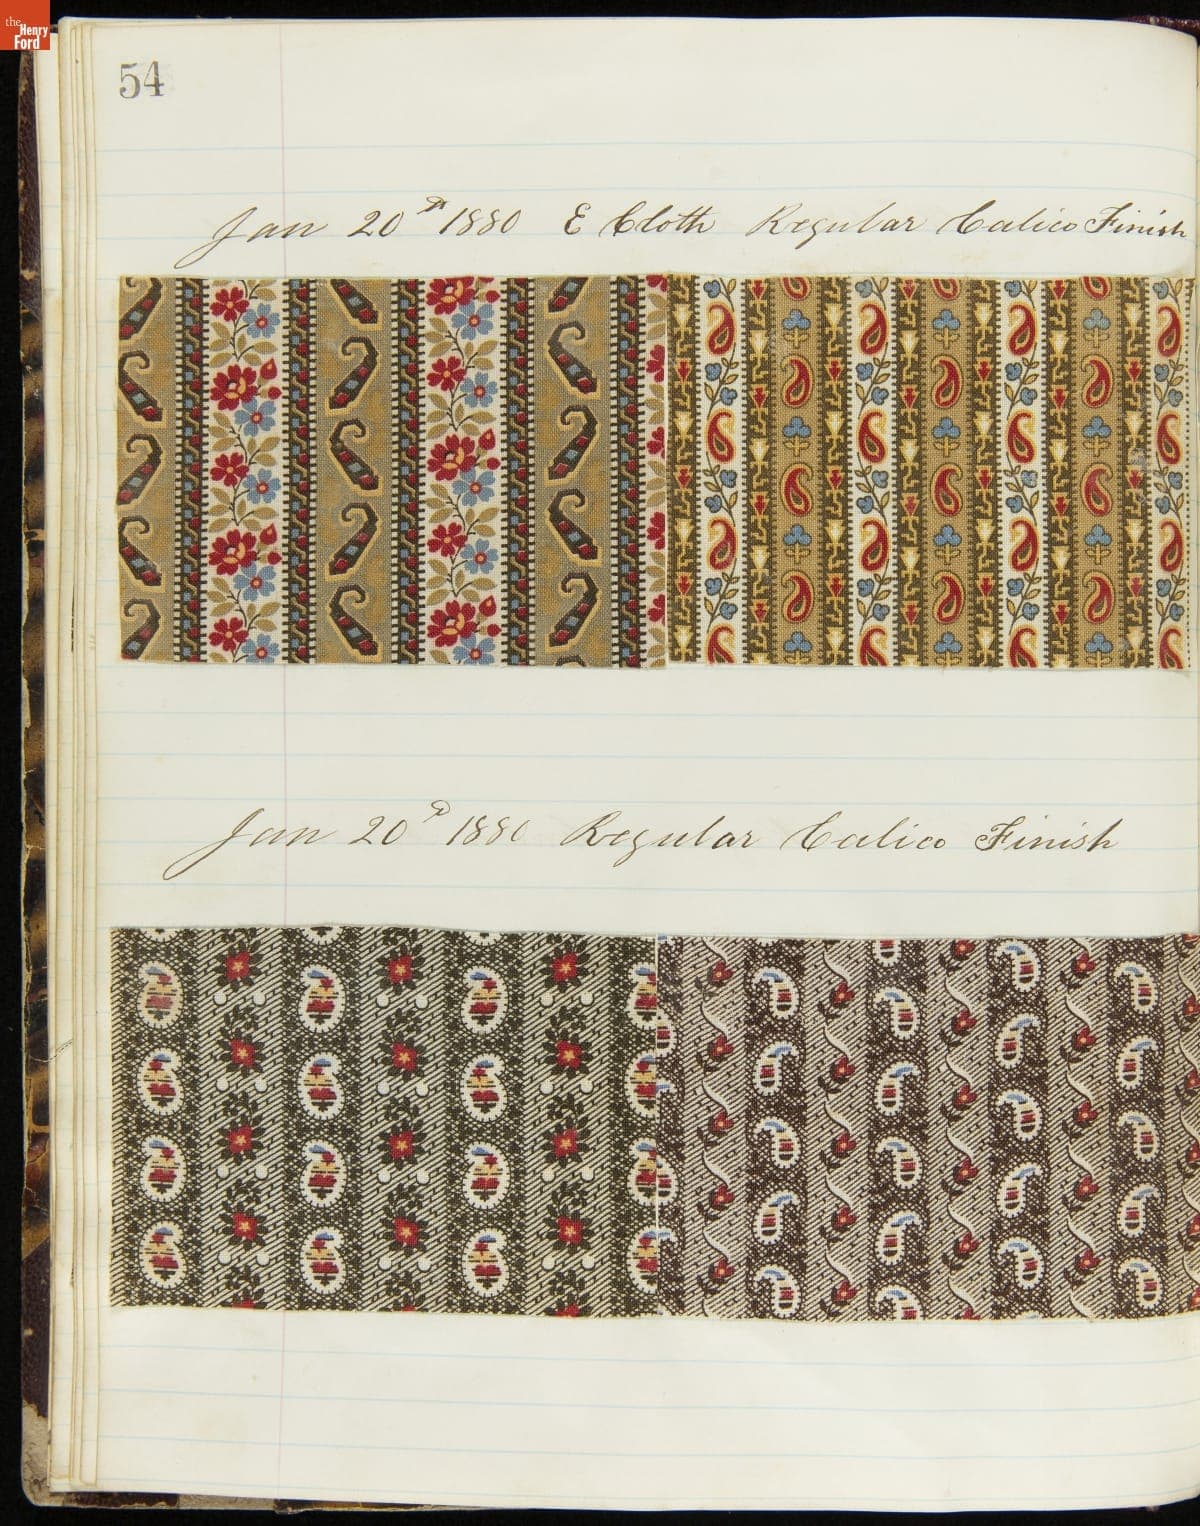 the
Henry
Ford
54
Jan 20th 1880 E Cloth Regular Calico Finish
Jan 20th 1880 Regular Calico Finish